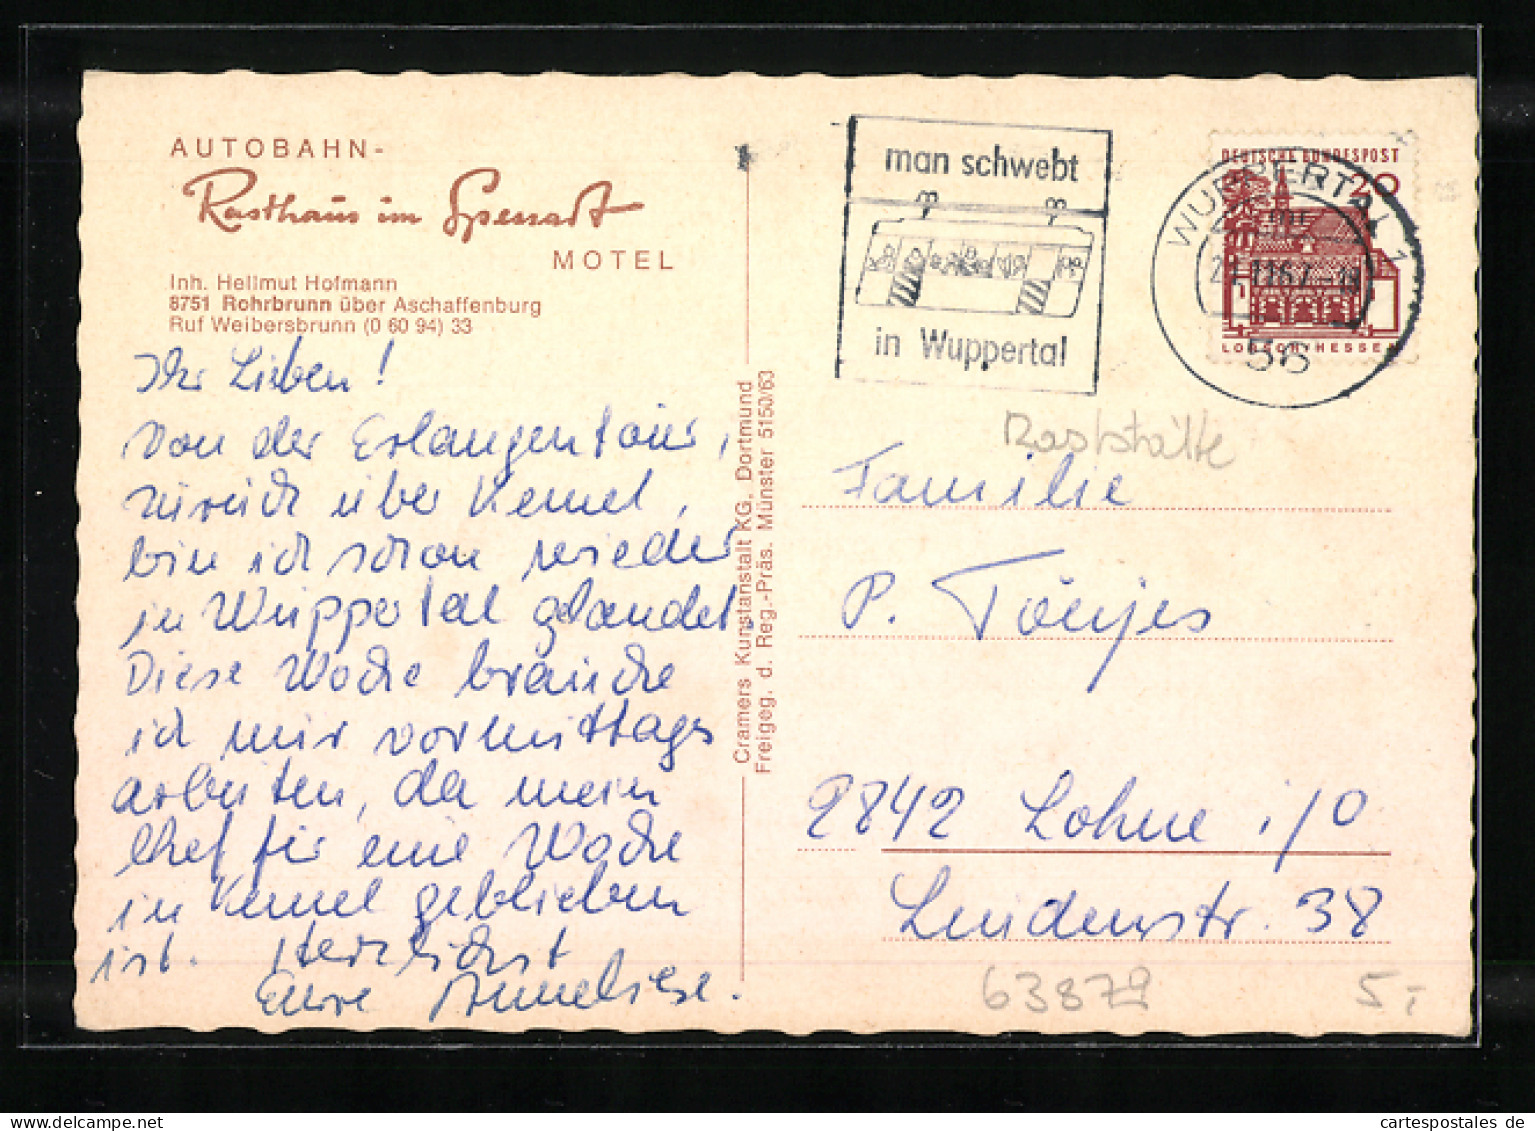 AUTOBAHN-
Rasthaus im Spessart
MOTEL
Inh. Hellmut Hofmann
8751 Rohrbrunn über Aschaffenburg
Ruf Weibersbrunn (0 60 94) 33
Ihr Lieben!
Von der Erlangentour,
zurück über Kemel,
bin ich schon wieder
in Wuppertal gelandet.
Diese Woche brauche
ich mir vormittags
arbeiten, da mein
Chef für eine Woche
in Kemel geblieben
ist. Herzlichst
Eure Anneliese.
Cramers Kunstanstalt KG, Dortmund
Freigeg. d. Reg.-Präs. Münster 5150/63
man schwebt
in Wuppertal
DEUTSCHE BUNDESPOST
20
LORSCH/HESSEN
WUPPERTAL 1
56
Raststätte
Familie
P. Tönjes
2842 Lohne i/O
Lindenstr. 38
63879
5,-
cartespostales de